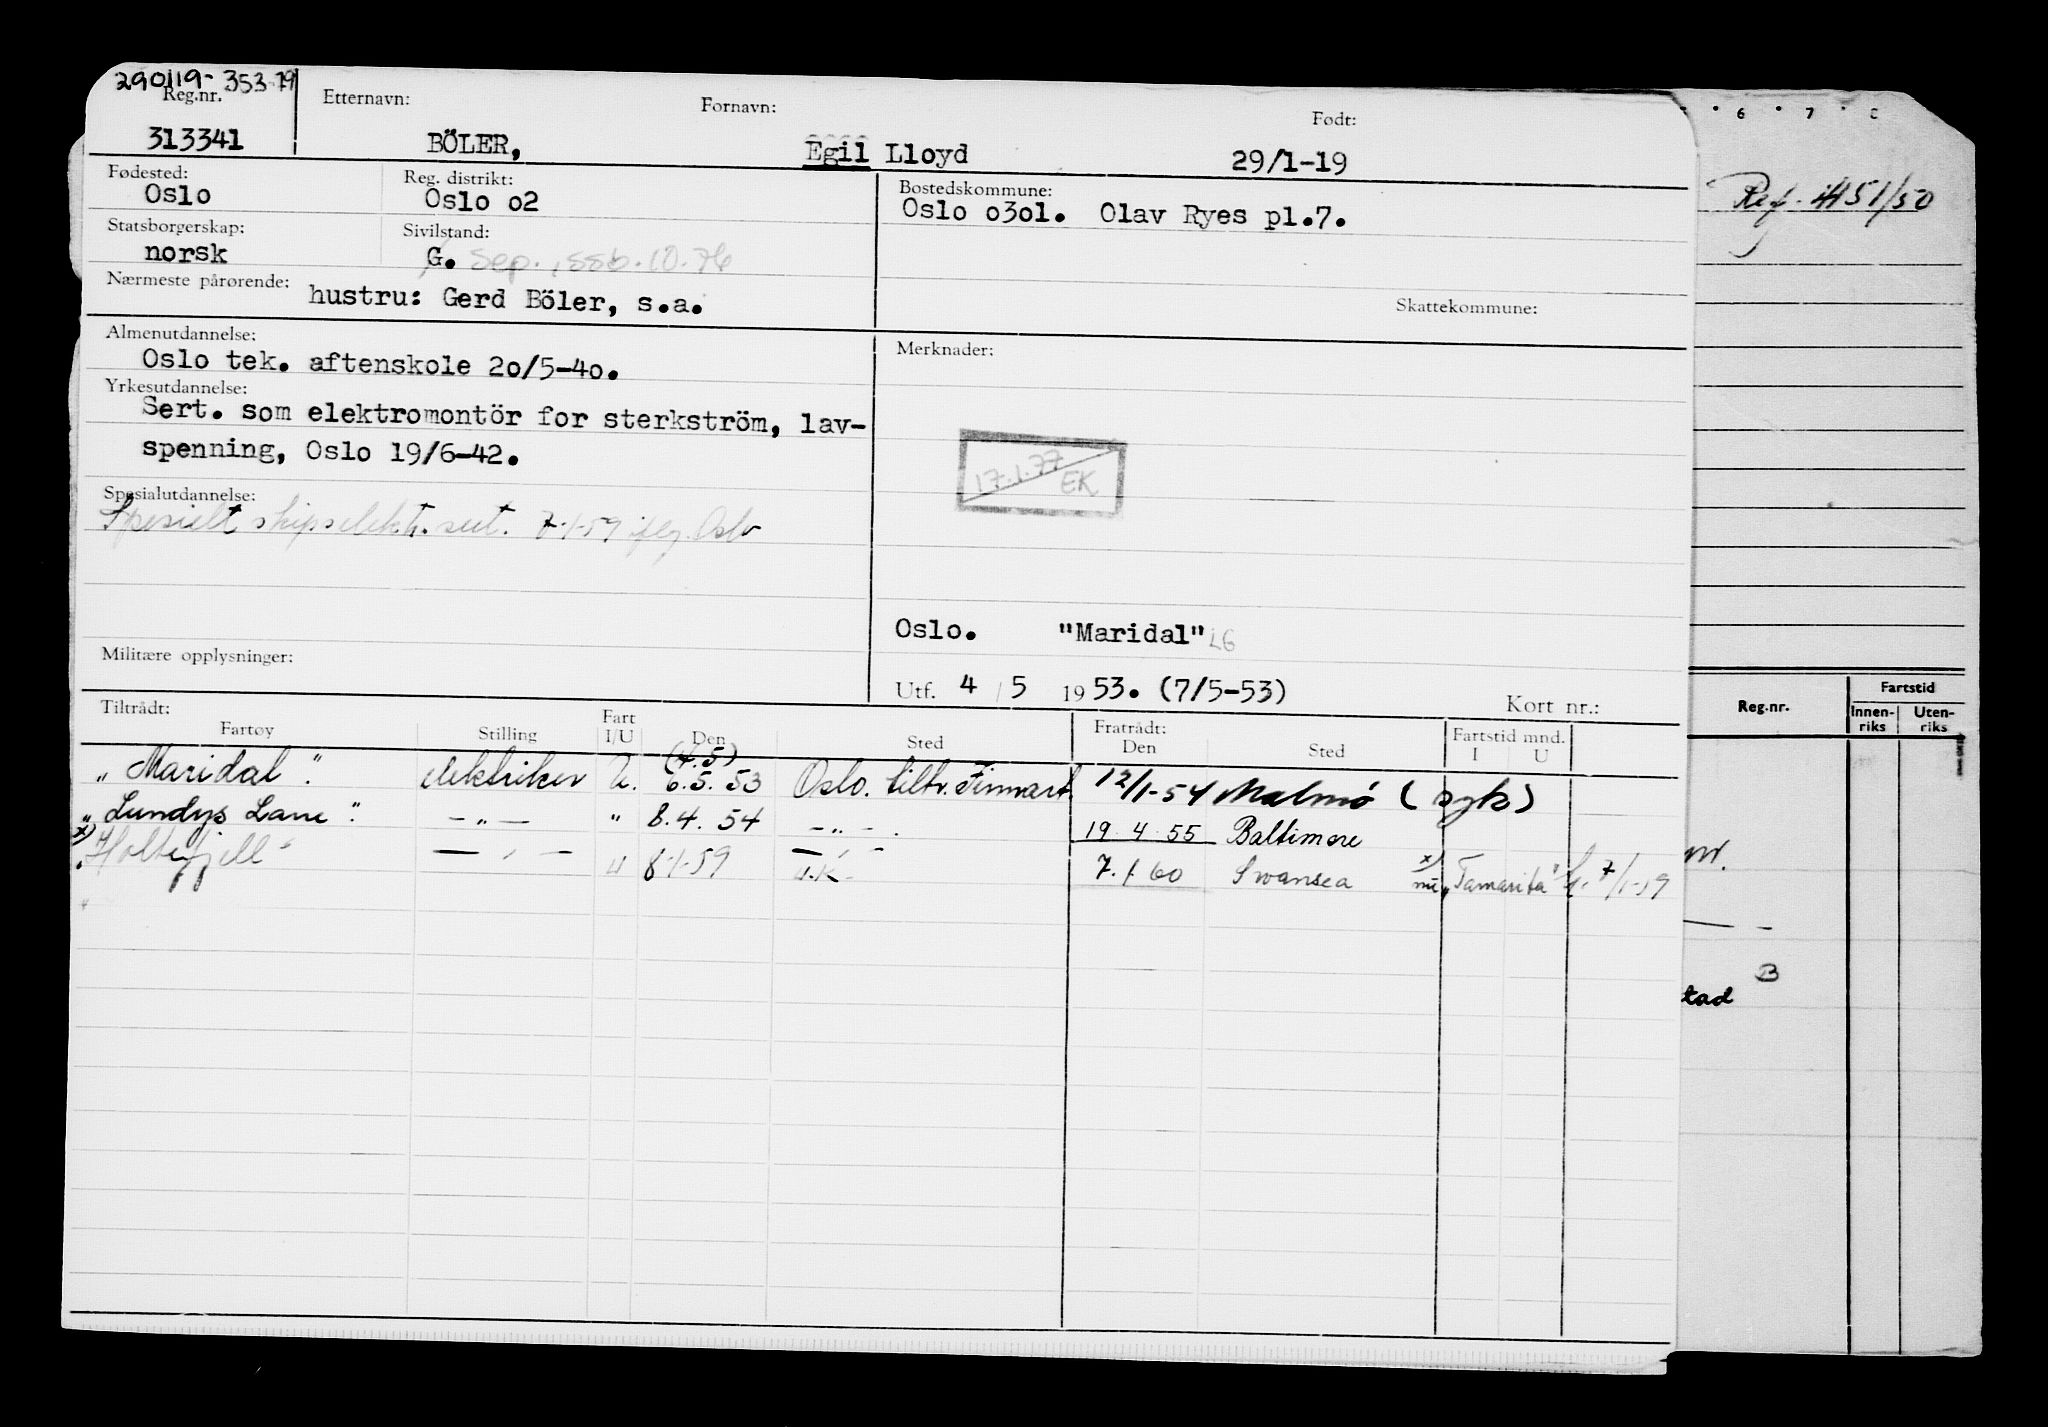 290119-353 79
Reg.nr. Etternavn: Fornavn: Født:
313341 BÖLER, Egil Lloyd 29/1-19
Fødested: Reg. distrikt: Bostedskommune:
Oslo Oslo o2 Oslo o3o1. Olav Ryes pl.7.
Statsborgerskap: Sivilstand:
norsk G. Sep. 10.76
Nærmeste pårørende: hustru: Gerd Böler, s.a. Skattekommune:
Almenutdannelse: Merknader:
Oslo tek. aftenskole 2o/5-4o.
Yrkesutdannelse:
Sert. som elektromontör for sterkström, lav-
spenning, Oslo 19/6-42.
17.1.77 EK
Spesialutdannelse:
Spesielt skipselektr. sert. 7-1-59 Oslo
Oslo. "Maridal" LG
Militære opplysninger:
Utf. 4 / 5 1953. (7/5-53) Kort nr.:
Tiltrådt: Fratrådt:
Fartøy Stilling Fart I/U Den Sted Den Sted Fartstid mnd. I U
(4.5)
"Maridal". elektriker U. 6.5.53 Oslo. tiltr. 12/1-54 Malmö (syk)
"Lundys Lane". -"- " 8.4.54 -"-. 19.4.55 Baltimore
x) "Holtefjell" -"- " 8-1-59 -"- 7.1.60 Swansea x) nu "Tamarita" 7/1-59
U.K.
6 7 8
Ref. 4451/50
Reg.nr. Fartstid
Innen-riks Uten-riks
B
tad